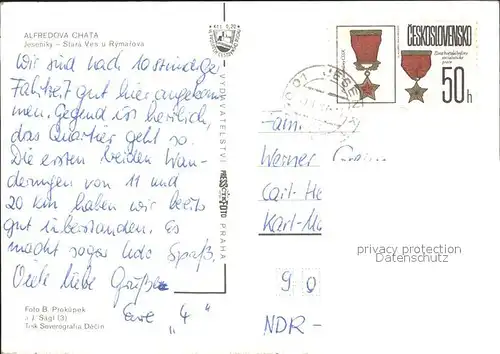 ALFREDOVA CHATA
Jeseníky - Stará Ves u Rýmařova
Wir sind nach 10 stündiger
Fahrzeit gut hier angekom-
men. Gegend ist herrlich,
das Quartier geht so.
Die ersten beiden Wan-
derungen von 11 und
20 km haben wir bereits
gut überstanden. Es
macht sogar Udo Spaß.
Viele liebe Grüße
Eure 4
Foto B. Prokůpek
a J. Ságl (3)
Tisk Severografia Děčín
Kčs 1,20
VYDAVATELSTVÍ
PRESSFOTO
PRAHA
ČESKOSLOVENSKO
50 h
Fam.
Werner
Carl-He
Karl-Ma
90
NDR-
privacy protection
Datenschutz